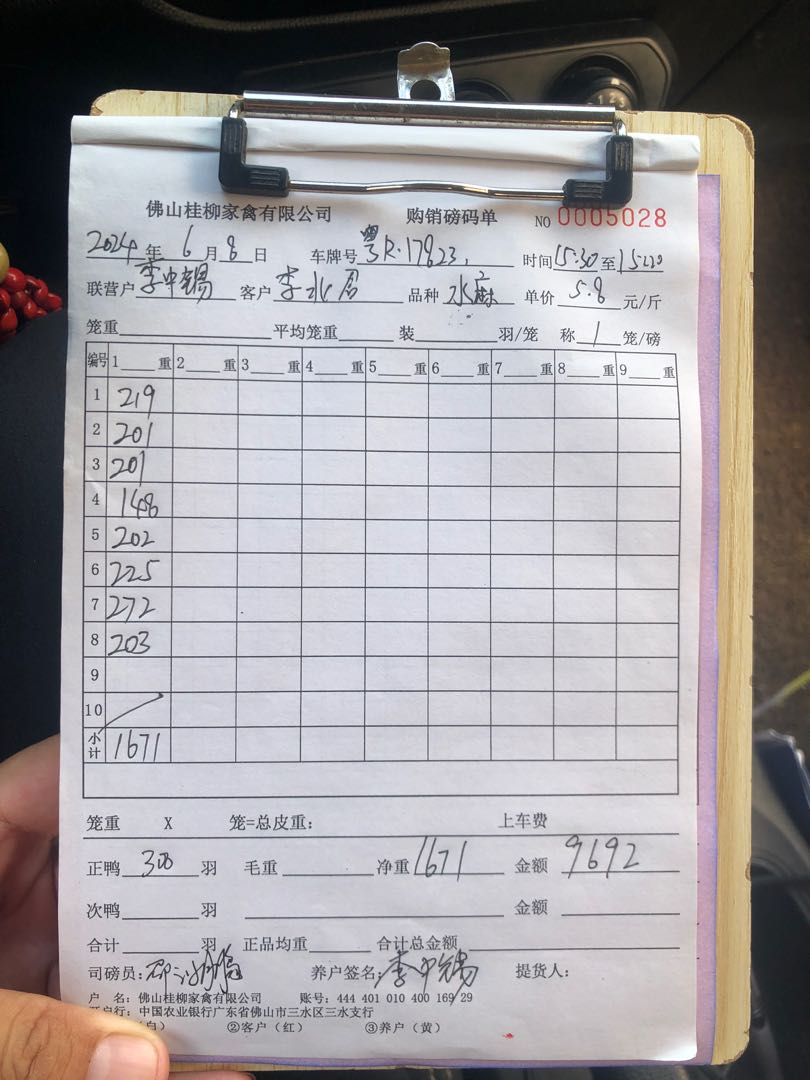 佛山桂柳家禽有限公司 购销磅码单 NO 0005028
2024 年 6 月 8 日 车牌号 粤R·17823 时间 15:30 至
联营户 李中锡 客户 李水 品种 水麻 单价 5.8 元/斤
笼重 平均笼重 装 羽/笼 称 1 笼/磅
编号 1 重 2 重 3 重 4 重 5 重 6 重 7 重 8 重 9 重
1 219
2 201
3 201
4 148
5 202
6 225
7 272
8 203
9
10
小计 1671
笼重 X 笼=总皮重： 上车费
正鸭 300 羽 毛重 净重 1671 金额 9692
次鸭 羽 金额
合计 羽 正品均重 合计总金额
司磅员： 养户签名：李中锡 提货人：
户 名：佛山桂柳家禽有限公司 账号：444 401 010 400 169 29
开户行：中国农业银行广东省佛山市三水区三水支行
白） ②客户（红） ③养户（黄）